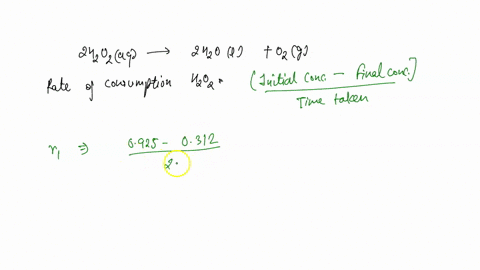 2H2O2(aq) → 2H2O(l) + O2(g)
Rate of consumption H2O2 = (Initial conc. - final conc.]
Time taken
r1 ⇒ 0.925 - 0.312
2.